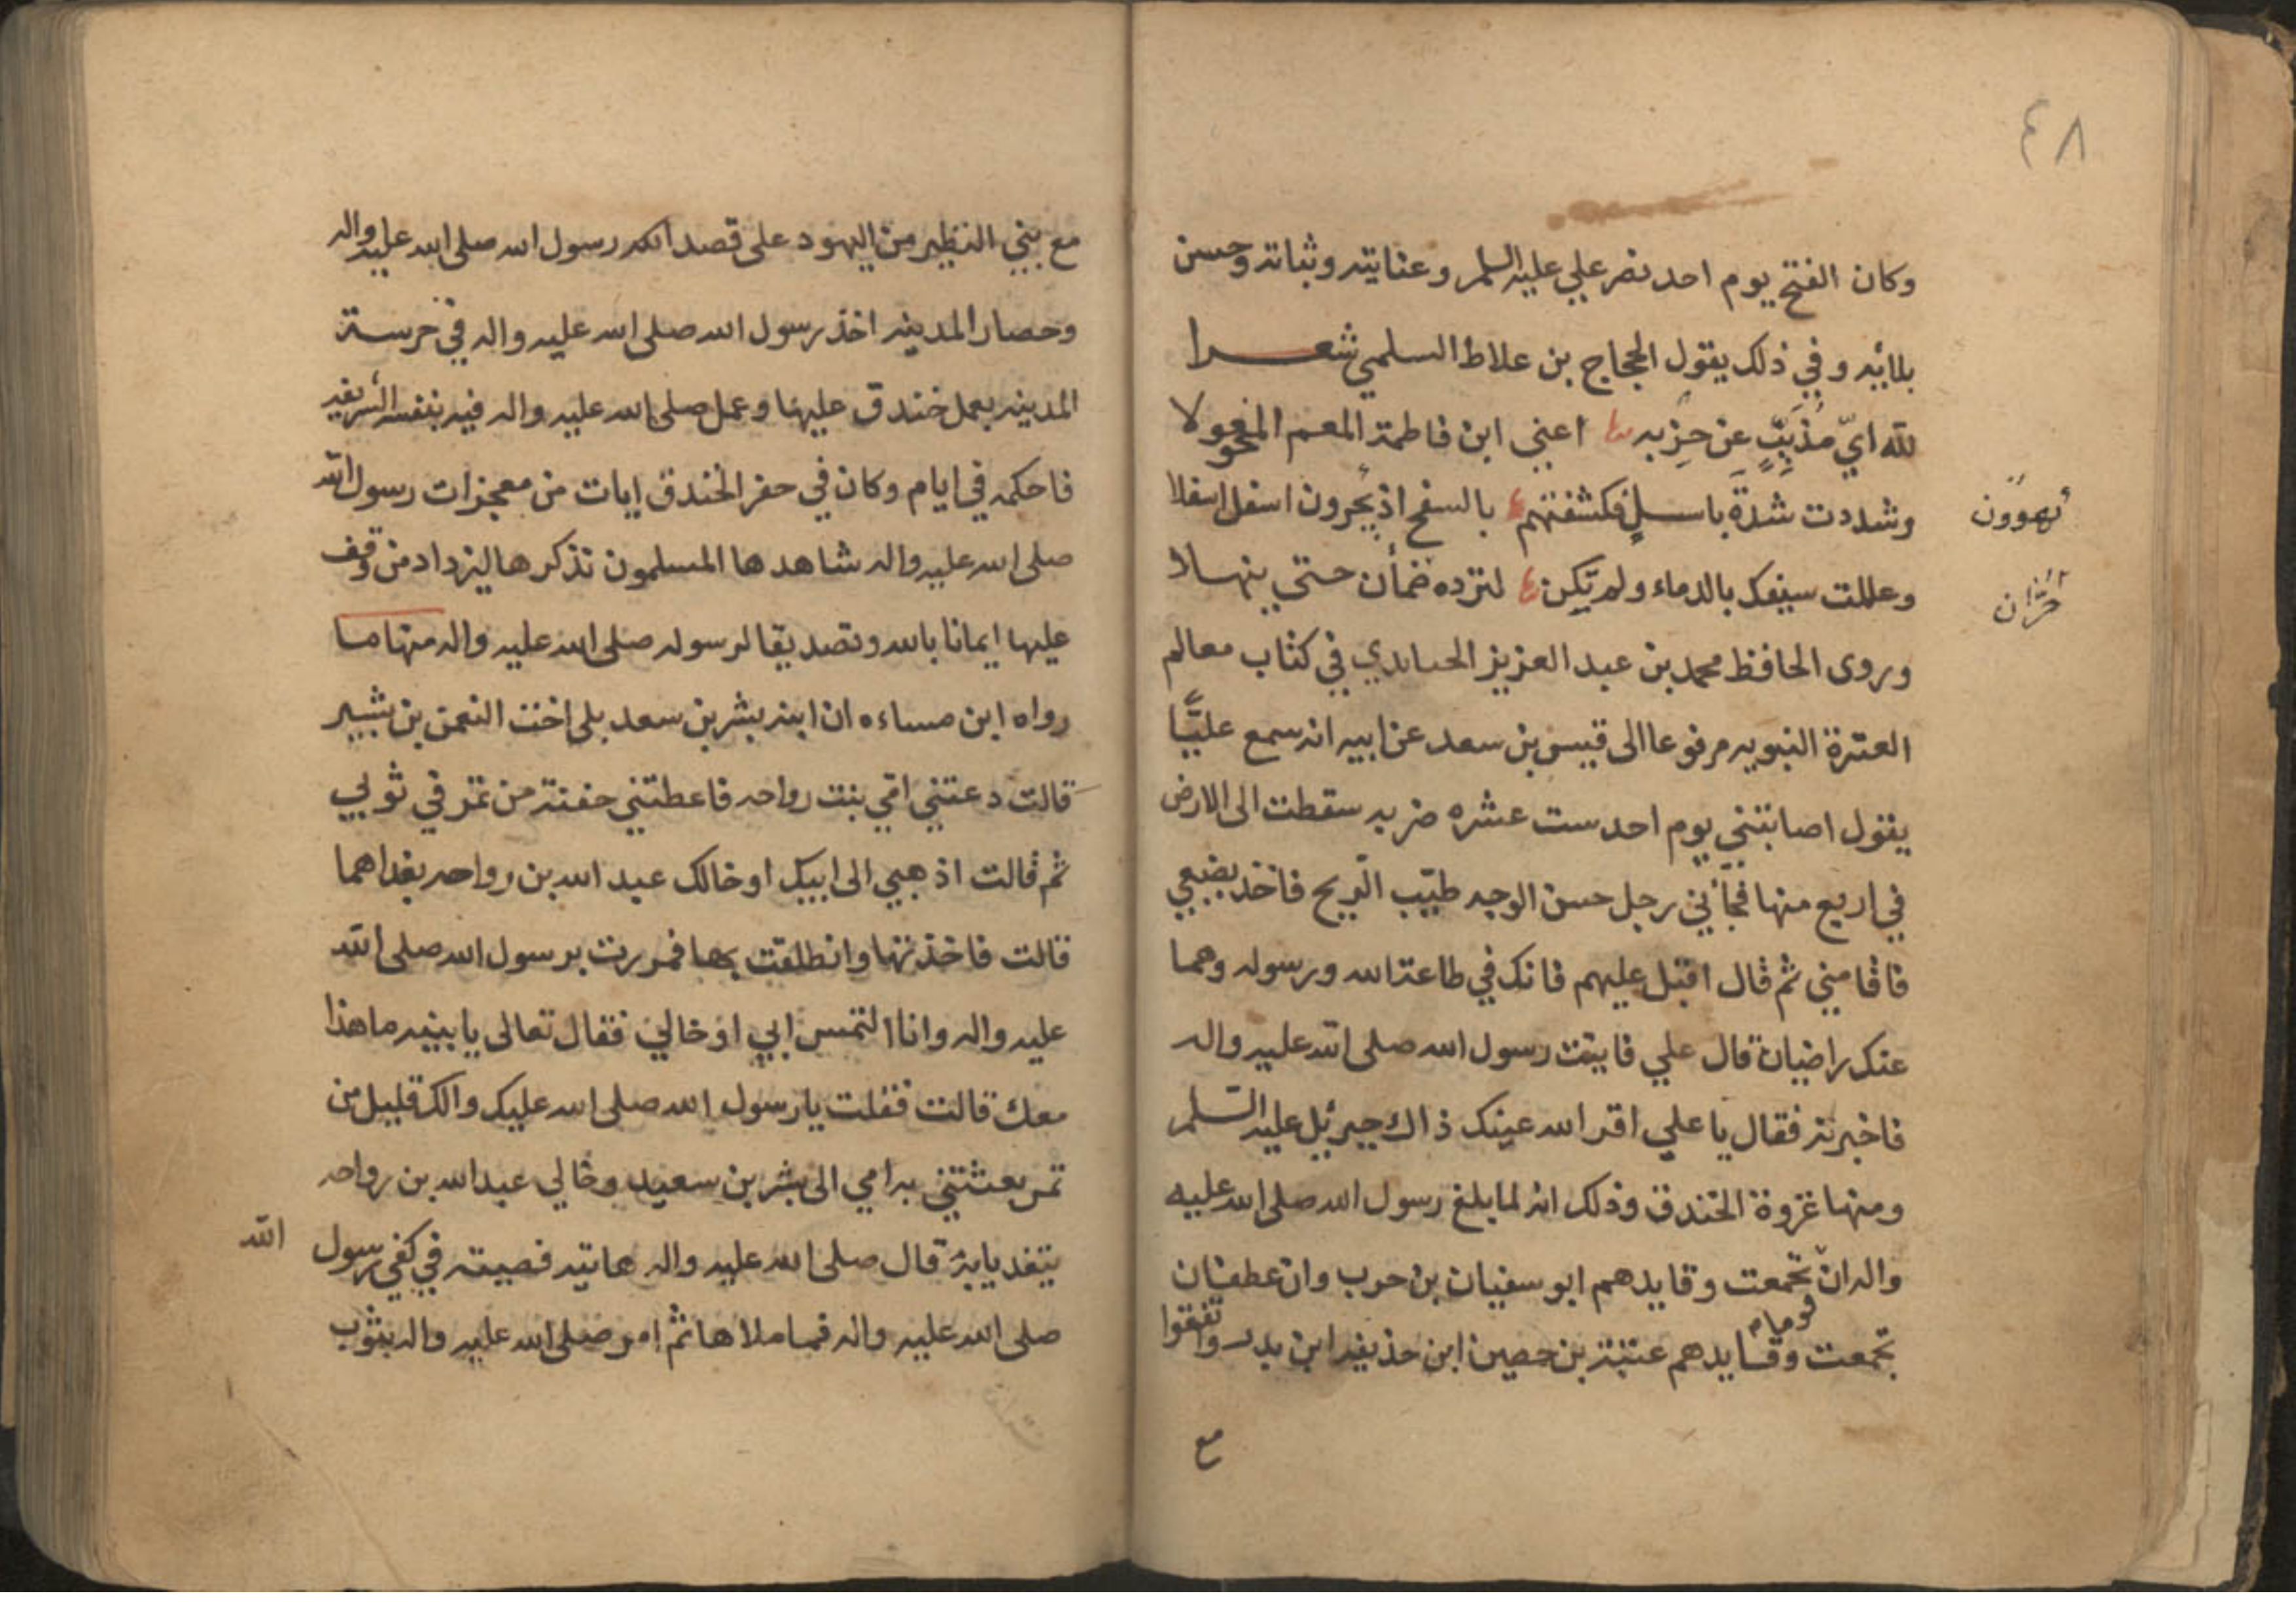 ٤٨
وكان الفتح يوم احد نصر علي عليه السلم وعنايته وثباته وحسن
بلائه وفي ذلك يقول الحجاج بن علاط السلمي شعرا
لله ايّ مذببٍ عن حزبه اعني ابن فاطمة المعم المخولا
وشددت شدة باسلٍ فكشفتهم بالسفح اذ يجرون اسفل اسفلا
يهوون
وعللت سيفك بالدماء ولم تكن لترده ضمأن حتى ينهلا
حرّان
وروى الحافظ محمد بن عبد العزيز الحنابدي في كتاب معالم
العترة النبويه مرفوعا الى قيس بن سعد عن ابيه انه سمع عليًّا
يقول اصابتني يوم احد ست عشره ضربه سقطت الى الارض
في اربع منها فجأني رجل حسن الوجه طيّب الريح فاخذ بضبعي
فاقامني ثم قال اقبل عليهم فانك في طاعة الله ورسوله وهما
عنك راضيان قال علي فاتيت رسول الله صلى الله عليه واله
فاخبرته فقال يا علي اقر الله عينك ذاك جبرئيل عليه السلم
ومنها غزوة الخندق وذلك انه لما بلغ رسول الله صلى الله عليه
واله ان تجمعت وقايدهم ابو سفيان بن حرب وان غطفان
تجمعت وقايدهم عتبة بن حصين ابن حذيفه ابن بدر واتفقوا
مع
مع بني النظير من اليهود على قصد رسول الله صلى الله عليه واله
وحصار المدينه اخذ رسول الله صلى الله عليه واله في حرسة
المدينه بعمل خندق عليها وعمل صلى الله عليه واله فيه بنفسه الشريفه
فاحكمه في ايام وكان في حفر الخندق ايات من معجزات رسول الله
صلى الله عليه واله شاهدها المسلمون نذكرها ليزداد من وقف
عليها ايمانا بالله وتصديقا لرسوله صلى الله عليه واله منها ما
رواه ابن ان ابنه بشر بن سعد بلى اخت النعمن بن بشير
قالت دعتني امي بنت رواحه فاعطتني حفنة من تمر في ثوبي
ثم قالت اذهبي الى ابيك او خالك عبد الله بن رواحه بغداهما
قالت فاخذتها وانطلقت بها فمررت برسول الله صلى الله
عليه واله وانا التمس ابي او خالي فقال تعالى يا بنيه ما هذا
معك قالت فقلت يا رسول الله صلى الله عليك والك قليل من
تمر بعثتني به امي الى بشر بن سعيد وخالي عبد الله بن رواحه
يتغديانه قال صلى الله عليه واله هاتيه فصببته في كفي رسول الله
صلى الله عليه واله فما ملاها ثم امر صلى الله عليه واله بثوب